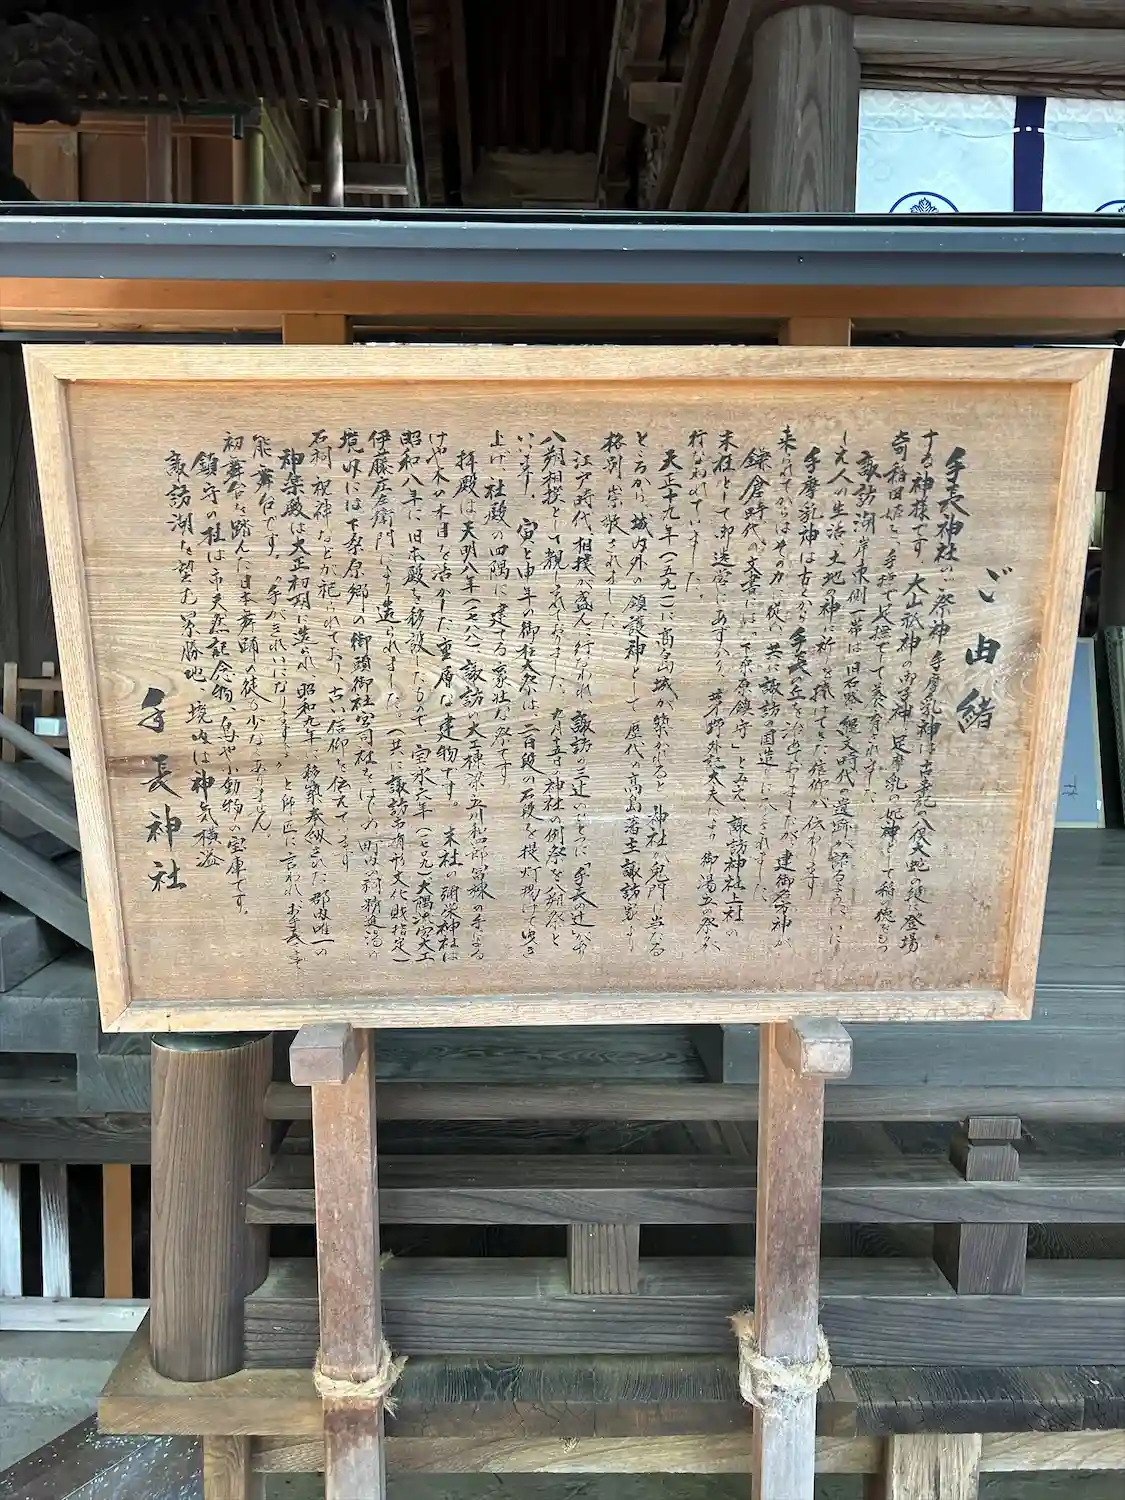 ご由緒
手長神社のご祭神 手摩乳神は古事記の八俣大蛇の段に登場
する神様です。大山祇神の御子神、足摩乳の妃神として稲の徳をもつ
奇稲田姫を、手撫で足撫でて養育されました
諏訪湖岸東側一帯は旧石器、縄文時代の遺跡が語るように、いにし
しえ人の生活、土地の神に祈りを捧げてきた信仰が伝わります
手摩乳神は古くから手長ヶ丘を治めておりましたが、建御名方神が
来られてからはその力に従い、共に諏訪の国造りに尽くされました、
鎌倉時代の文書には「下桑原鎮守」とみえ、諏訪神社上社の
末社として御 造営にあずかり、茅野外記大夫により御湯立の祭が
行なわれていました。
天正十九年(一五九一)に高島城が築かれると 神社が鬼門に当たる
ところから、城内外の鎮護神として 歴代の高島藩主諏訪家より
格別崇敬されました。
江戸時代、相撲が盛んに行なわれ、諏訪の三辻のひとつに「手長の辻」が
八朔相撲として親しまれておりました、九月十五日神社の例祭を八朔祭と
いいます。 寅と申年の御柱大祭は、二百段の石段を提灯揚げて曳き
上げ、社殿の四隅に建てる豪壮な祭です
拝殿は天明八年(一七八八)諏訪の大工棟梁立川和四郎冨棟の手による
けやき木の木目を活かした重厚な建物です。 末社の弥栄神社は
昭和八年に旧本殿を移設したもので 宝永六年(一七〇九)大隅流宮大工
伊藤庄左衛門により造られました。(共に諏訪市有形文化財指定)
境内には下桑原郷の御頭御社宮司社をはじめ、町内の祠、精進湯の
石祠、祝神などが祀られており、古い信仰を伝えてます
神楽殿は大正初期に造られ、昭和九年に移築奉納された郡内唯一の
能舞台です。"手がきれいになりますよ"と師匠に言われ、お手長さまで
初舞台を踏んだ日本舞踊の徒も少なくありません
鎮守の杜は市天然記念物、鳥や小動物の宝庫です。
諏訪湖を望む景勝地、境内は神気横溢
手長神社